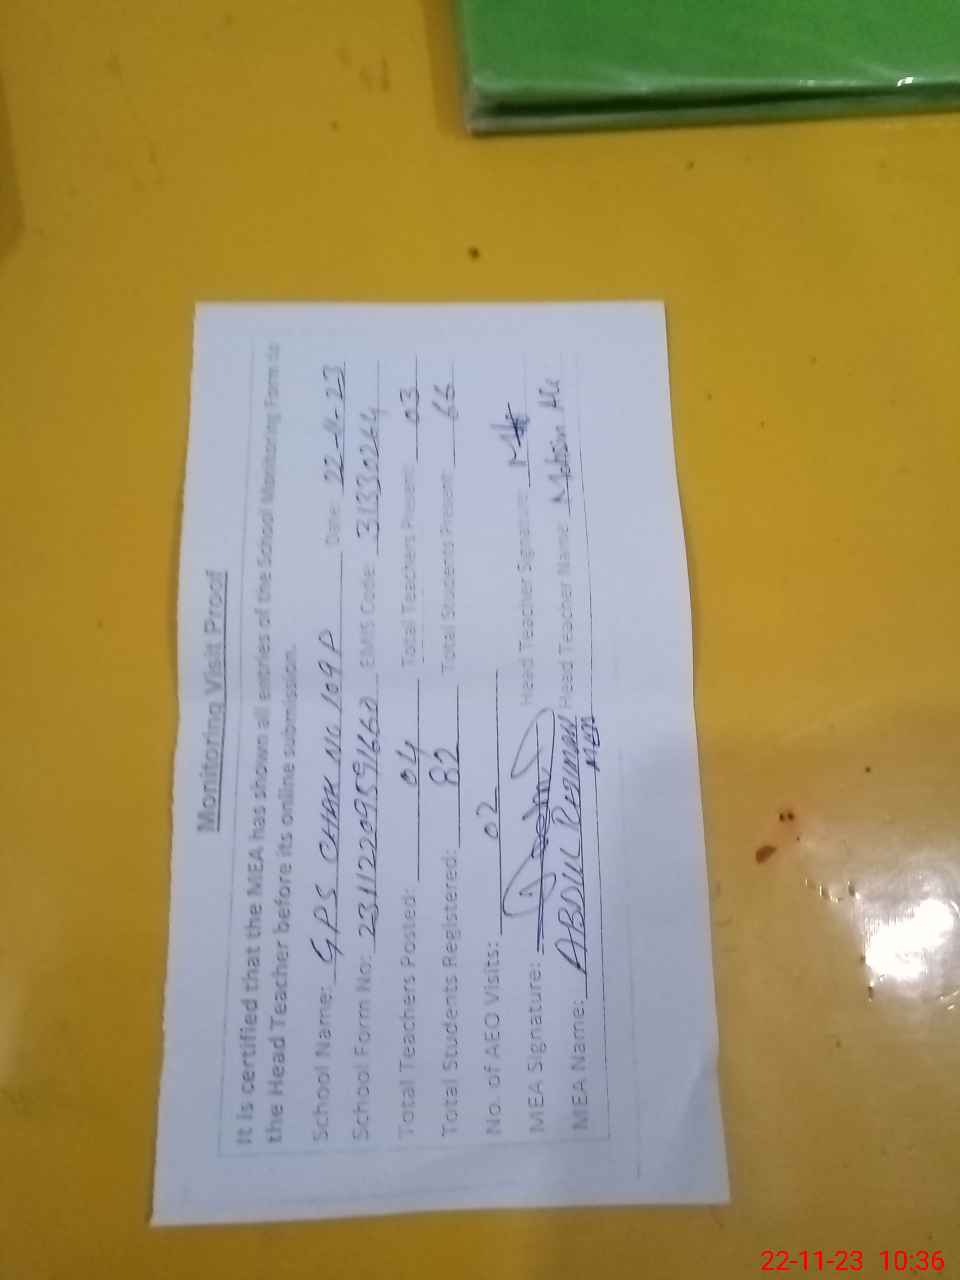 Monitoring Visit Proof
It is certified that the MEA has shown all entries of the School Monitoring Form to
the Head Teacher before its online submission.
School Name: GPS CHAK NO 109 P Date: 22-11-23
School Form No: 231122095591660 EMIS Code: 31330264
Total Teachers Posted: 04 Total Teachers Present: 03
Total Students Registered: 82 Total Students Present: 66
No. of AEO Visits: 02
MEA Signature: Head Teacher Signature:
MEA Name: ABDUL REHMAN Head Teacher Name: Mohsin Ali
MEA
22-11-23 10:36